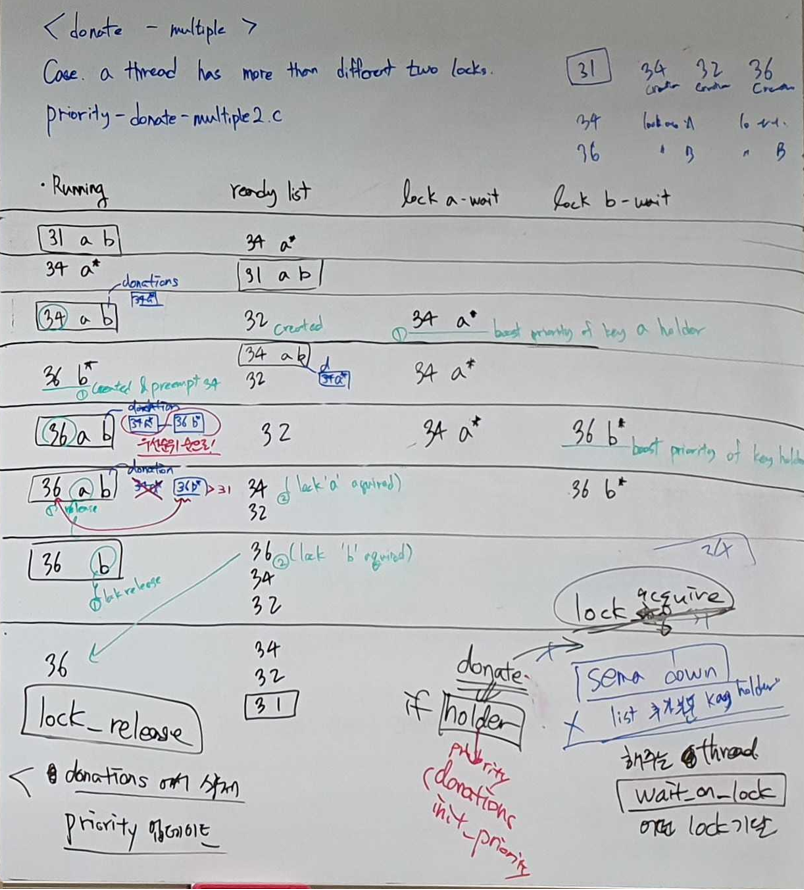 < donate - multiple >
Case. a thread has more than different two locks.
priority-donate-multiple2.c
31 34 32 36
34 A
36 " B " B
· Running ready list lock a-wait lock b-wait
31 a b 34 a*
34 a* 31 a b
donations
34a*
34 a b 32 created 34 a* ① boost priority of key a holder
34 a b d 34a*
36 b* 32 34 a*
① created & preempt 34
donation
34a* 36 b*
36 a b 32 34 a* 36 b* boost priority of key holder
우선순위 순으로!
donation
36 a b 34a* 36b* > 31 34 ② (lock 'a' aquired) 36 b*
① release 32
36 b 36 ② (lock 'b' aquired)
① lock release 34
32
lock acquire
36 34
32
31
lock_release
< donations 에서 삭제
priority 업데이트
donate
if holder
priority
(donations
init_priority
sema down
X list 추가 holder
해주는 thread
wait_on_lock
어떤 lock 기달